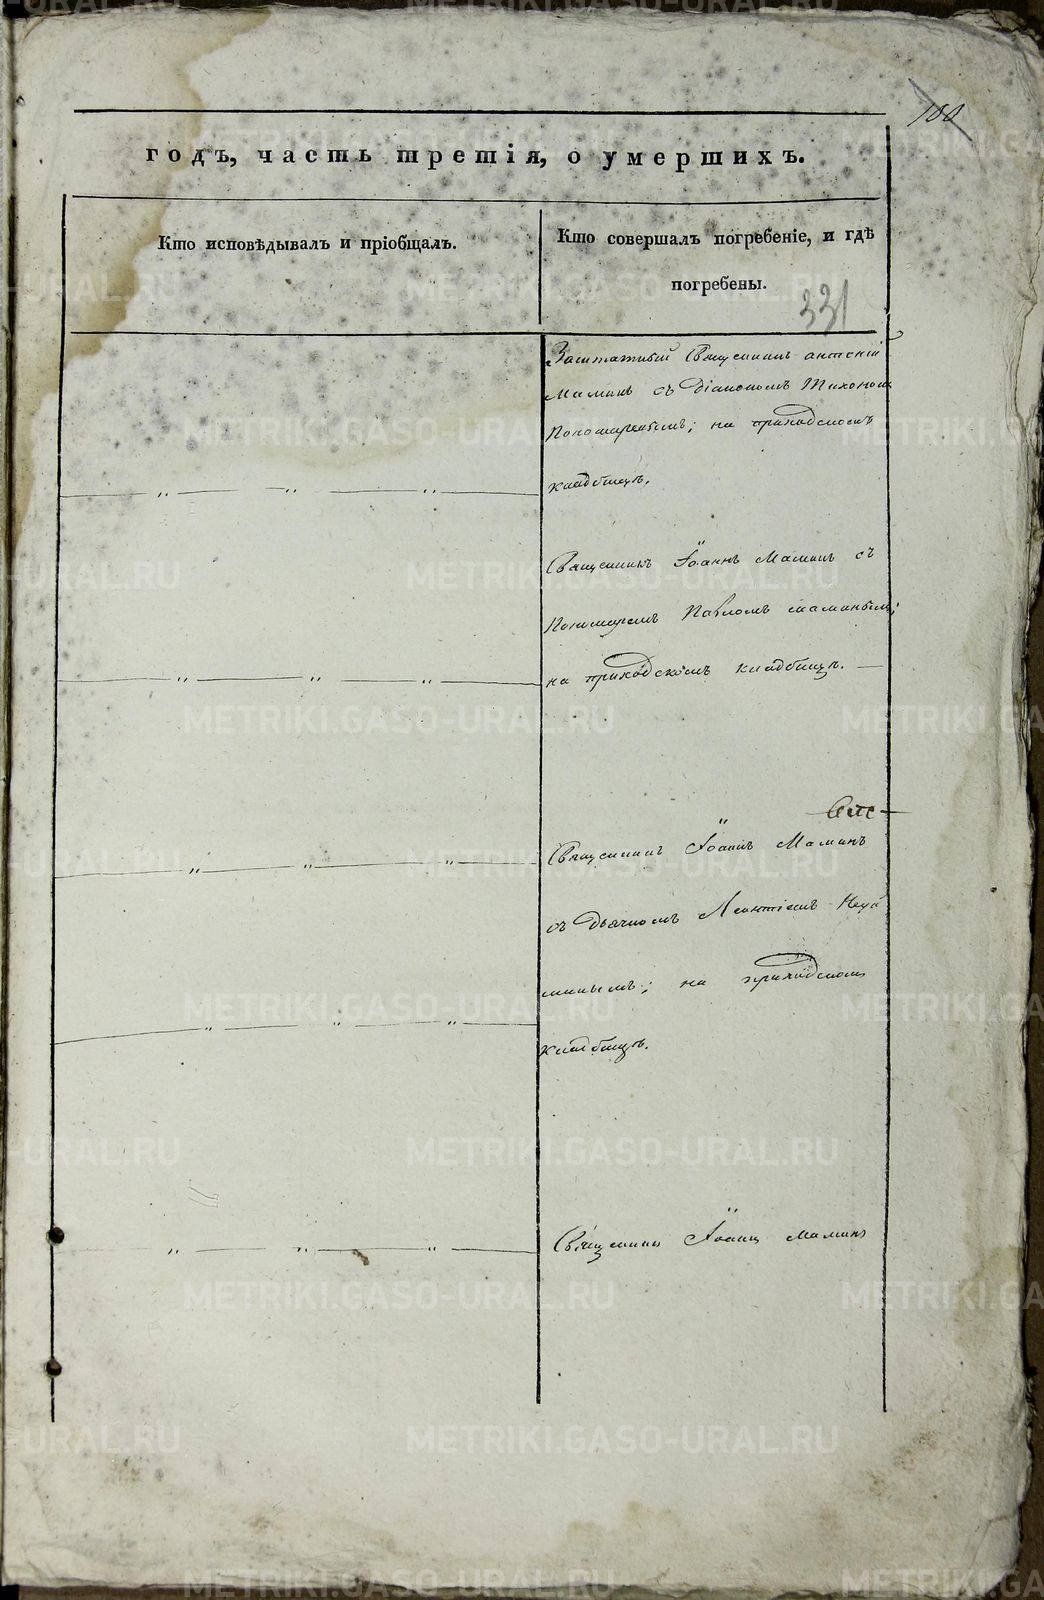 100
годъ, часть третія, о умершихъ.
Кто исповѣдывалъ и пріобщалъ.
Кто совершалъ погребеніе, и гдѣ
погребены.
331
Заштатный Священникъ антоній
Маминъ съ Діакономъ Тихономъ
Пономаревымъ; на приходскомъ
кладбищѣ.
Священникъ Іоаннъ Маминъ съ
Пономаремъ Павломъ маминымъ;
на приходскомъ кладбищѣ.
Священникъ Іоаннъ Маминъ
съ Дьячкомъ Леонтіемъ
на приходскомъ
кладбищѣ.
Священникъ Іоаннъ маминъ
METRIKI.GASO-URAL.RU